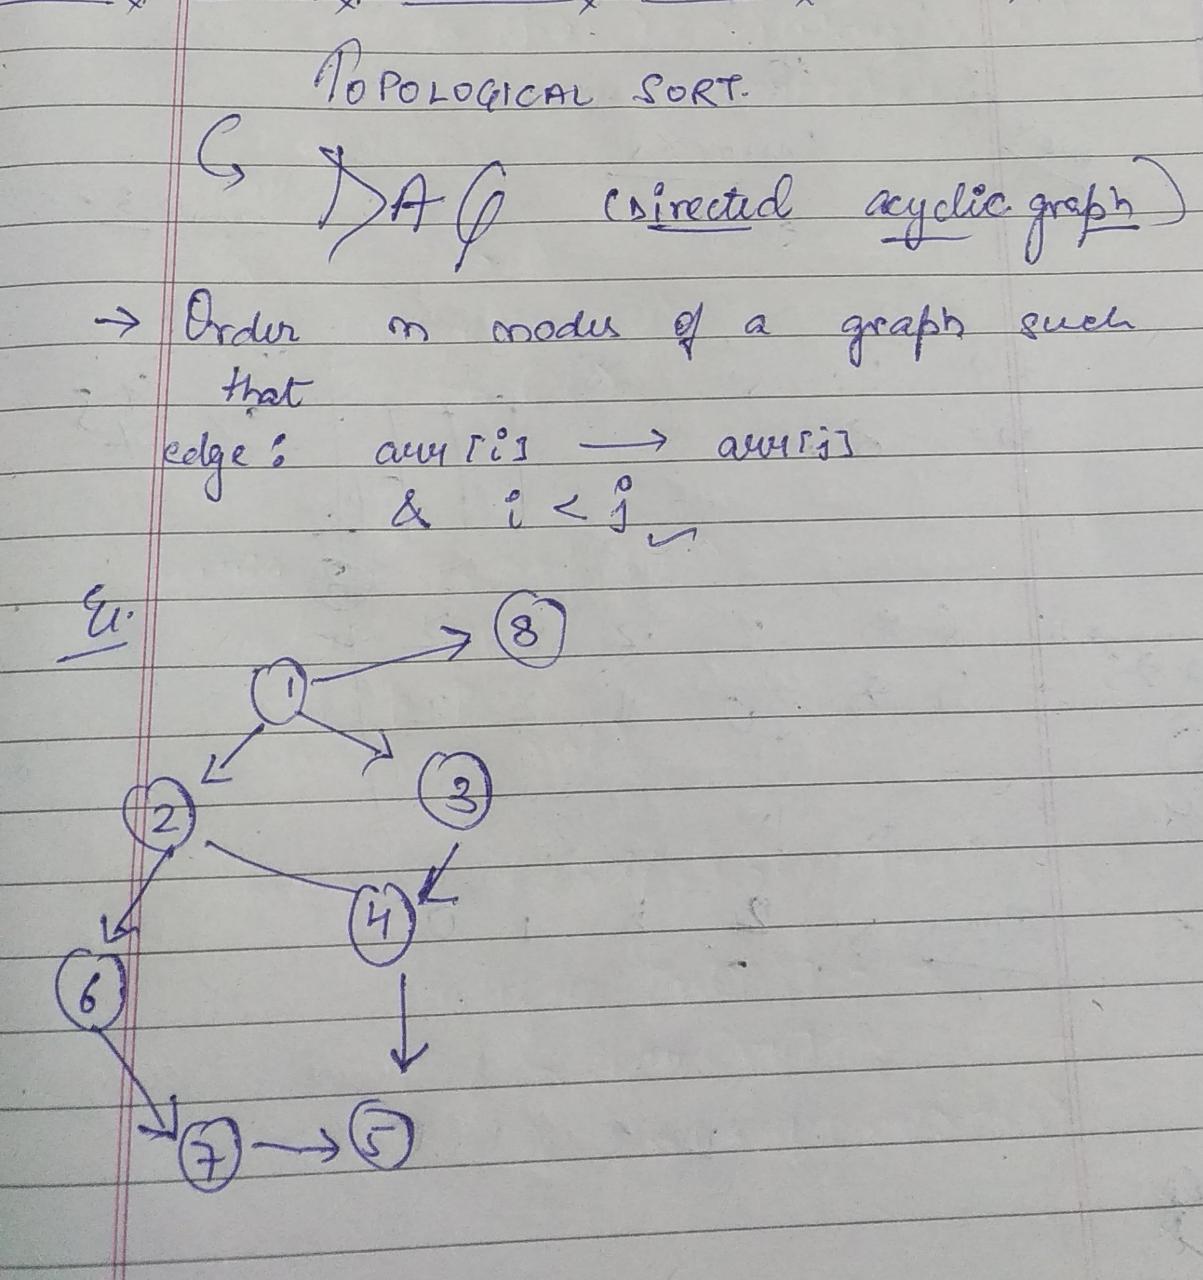 TOPOLOGICAL SORT.
DAG (Directed acyclic graph)
→ Order in nodes of a graph such
that
edge: arr[i] → arr[j]
& i < j
Ex.
8
1
3
2
4
6
5
7